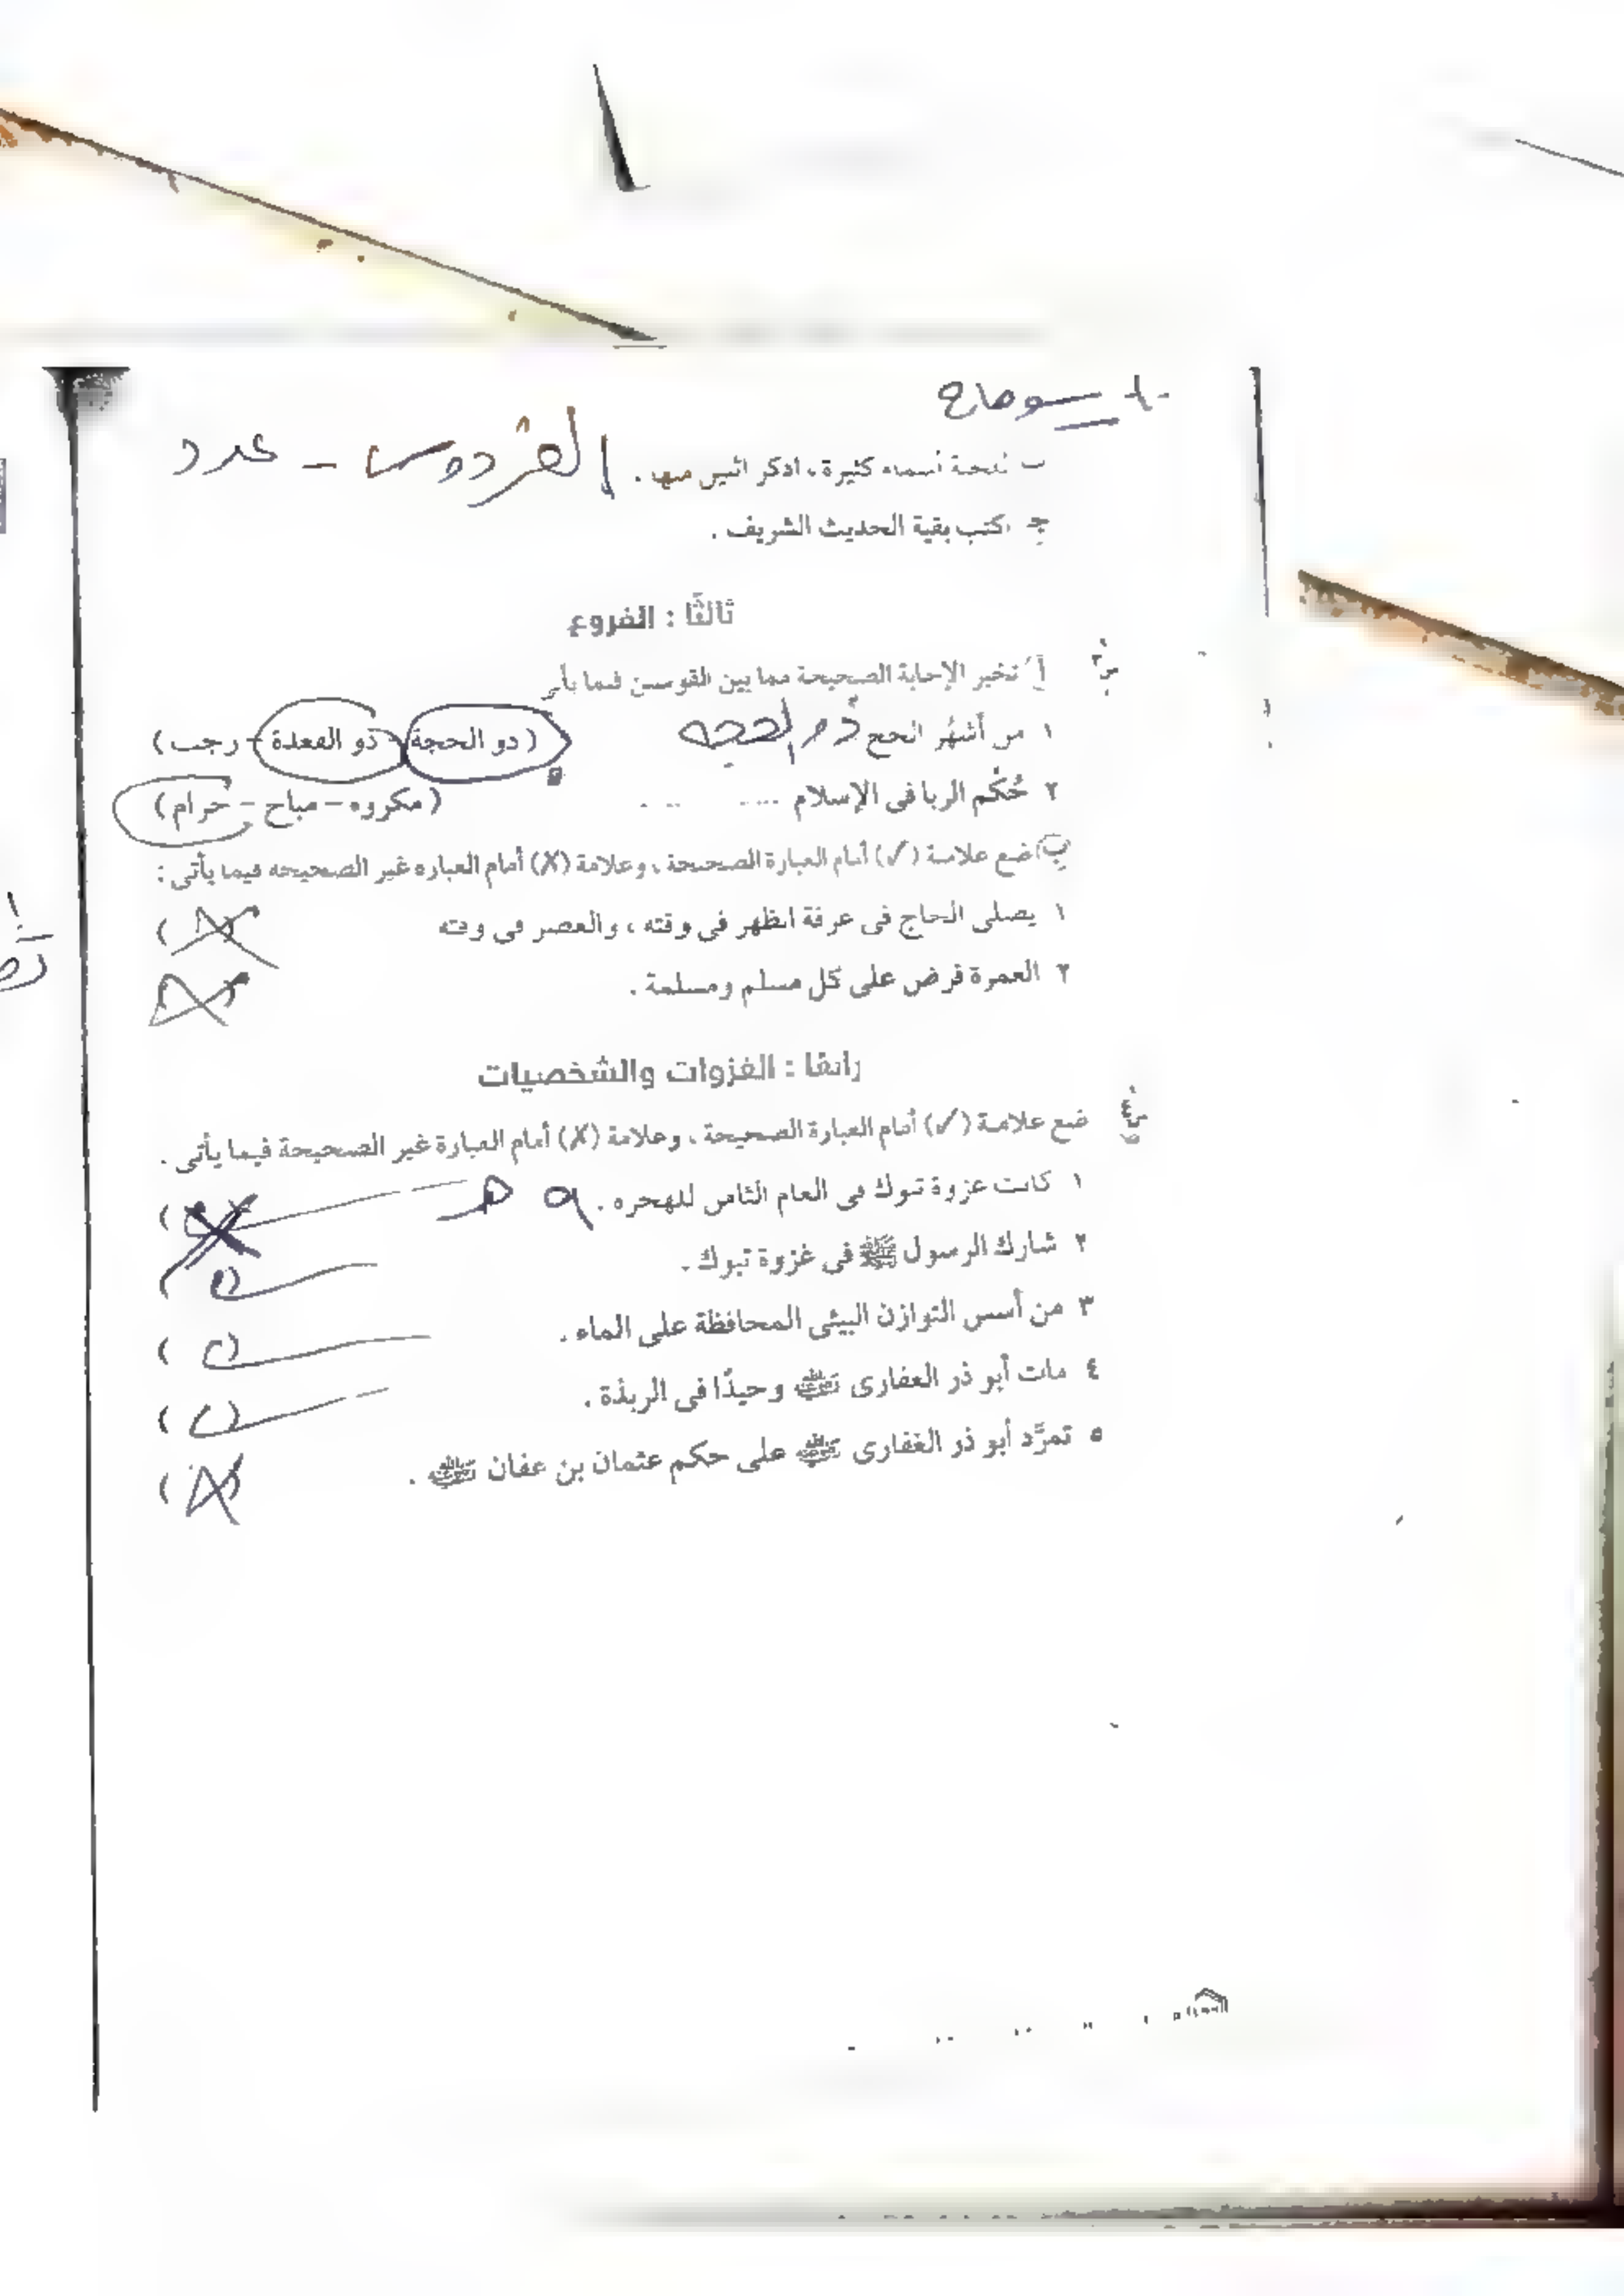 ١- سوهاج
ب للجنة أسماء كثيرة ، اذكر اثنين منها . الفردوس - عدد
جـ اكتب بقية الحديث الشريف .
ثالثًا : الفروع
س٣ أ تخير الإجابة الصحيحة مما بين القوسين فيما يأتى
١ من أشهُر الحج ذو الحجه ( ذو الحجة - ذو القعدة - رجب )
٢ حُكْم الربا فى الإسلام ........ ( مكروه - مباح - حرام )
ب ضع علامة (✓) أمام العبارة الصحيحة ، وعلامة (✗) أمام العبارة غير الصحيحة فيما يأتى :
١ يصلى الحاج فى عرفة الظهر فى وقته ، والعصر فى وقته ( ✗ )
٢ العمرة فرض على كل مسلم ومسلمة . ( ✗ )
رابعًا : الغزوات والشخصيات
س٤ ضع علامة (✓) أمام العبارة الصحيحة ، وعلامة (✗) أمام العبارة غير الصحيحة فيما يأتى .
١ كانت غزوة تبوك فى العام الثامن للهجرة . ٩ هـ ( ✗ )
٢ شارك الرسول ﷺ فى غزوة تبوك . ( )
٣ من أسس التوازن البيئى المحافظة على الماء . ( )
٤ مات أبو ذر الغفارى رضي الله عنه وحيدًا فى الربذة . ( )
٥ تمرَّد أبو ذر الغفارى رضي الله عنه على حكم عثمان بن عفان رضي الله عنه . ( ✗ )